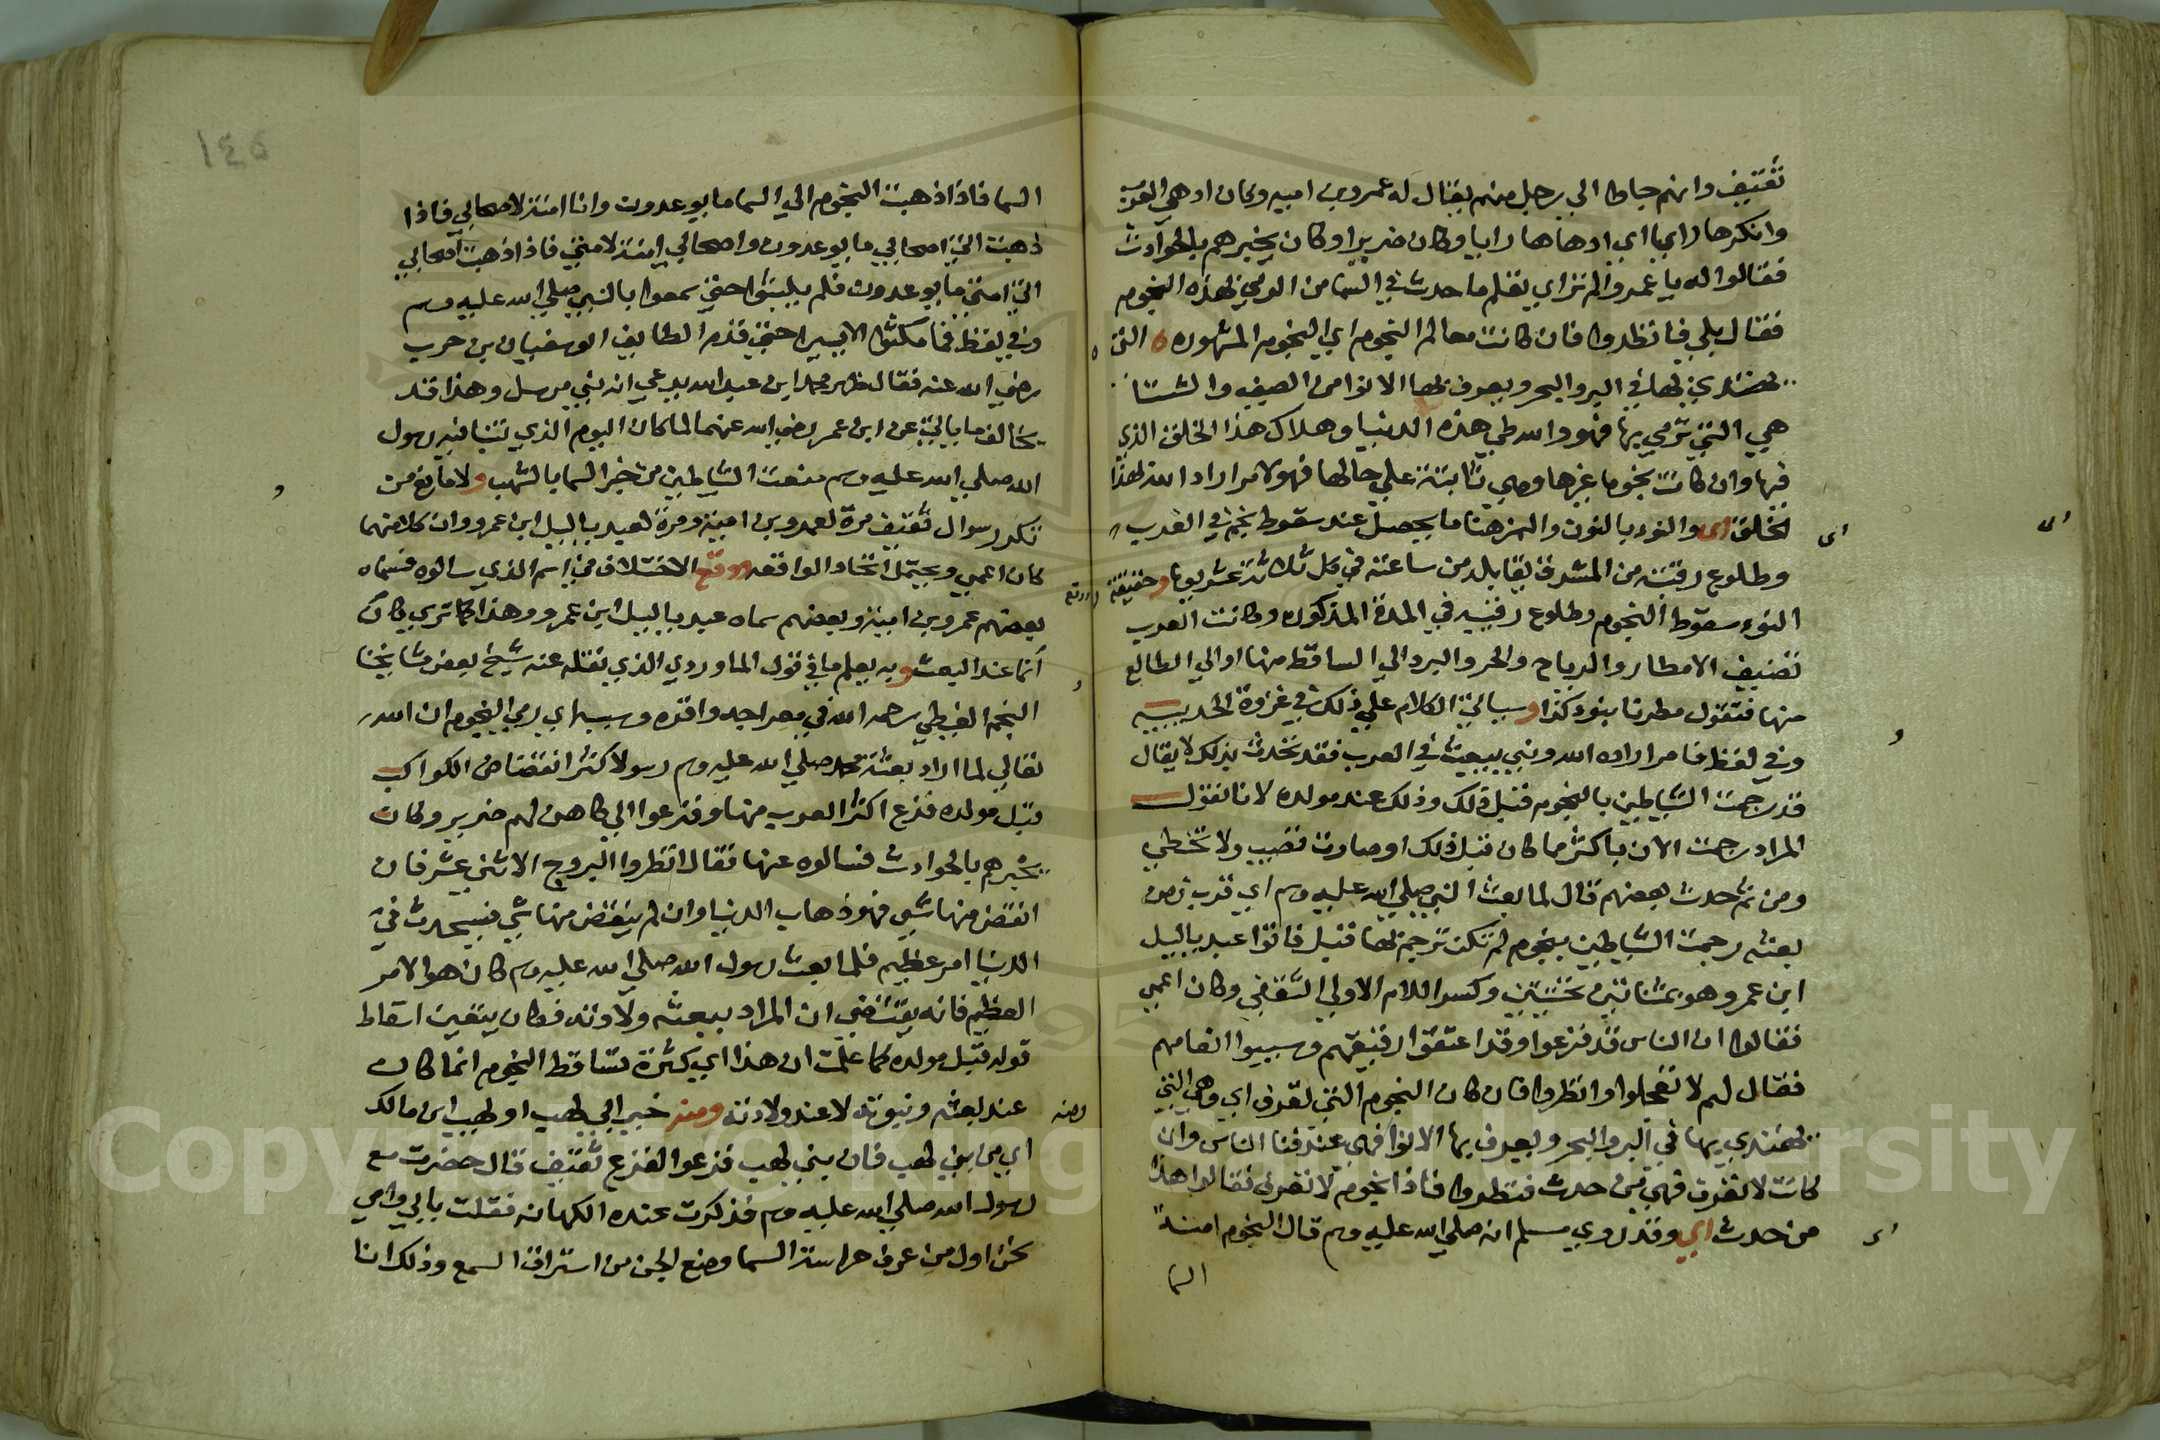 ثقيف وانهم جاوا الي رجل منهم يقال له عمرو بن امية وكان ادهي العرب
وانكرها رايا اي ادهاها رايا وكان ضريرا وكان يخبرهم بالحوادث
فقالوا له يا عمرو الم تر اي تعلم ما حدث في السما من الرمي بهذه النجوم
فقال بلي فانظروا فان كانت معالم النجوم اي النجوم المشهوره التي
يهتدي بها في البر والبحر ويعرف بها الانوا من الصيف والشتا
هي التي ترمي بها فهو والله طي هذه الدنيا وهلاك هذا الخلق الذي
فيها وان كانت نجوما غيرها وهي ثابتة علي حالها فهو لامر اراد الله بهذا
الخلق اي والنوء بالنون والهمز هنا ما يحصل عند سقوط نجم في الغرب
وطلوع رقيبه من المشرق يقابله من ساعته في كل ثلاثة عشر يوما وحقيقة
النوء سقوط النجوم وطلوع رقيبه في المدة المذكوره وكانت العرب
تضيف الامطار والرياح والحر والبرد الي الساقط منها او الي الطالع
منها فتقول مطرنا بنوء كذا وسياتي الكلام علي ذلك في غزوة الحديبيه
وفي لفظ فامر اراده الله ونبي يبعث في العرب فقد تحدث بذلك لا يقال
قد رجمت الشياطين بالنجوم قبل ذلك وذلك عند مولده لانا نقول
المراد رجمت الان باكثر مما كان قبل ذلك او صارت تصيب ولا تخطي
ومن ثم حدث بعضهم قال لما بعث النبي صلي الله عليه وسلم اي قرب زمن
بعثه رجمت الشياطين بنجوم لم تكن ترجم بها قبل فاتوا عبد ياليل
ابن عمرو هو بمثناتين تحتيتين وكسر اللام الاولي الثقفي وكان اعمي
فقالوا ان الناس قد فزعوا وقد اعتقوا رقيقهم وسيبوا انعامهم
فقال لهم لا تعجلوا وانظروا فان كان النجوم التي تعرف اي وهي التي
يهتدي بها في البر والبحر ويعرف بها الانوا فهي عند فنا الناس وان
كانت لا تعرف فهي من حدث فنظروا فاذا نجوم لا تعرف فقالوا هذا
من حدث اي وقد روي مسلم انه صلي الله عليه وسلم قال النجوم امنة
السما
١٤٥
السما فاذا ذهبت النجوم اتي السما ما يوعدون وانا امنة لاصحابي فاذا
ذهبت اتي اصحابي ما يوعدون واصحابي امنة لامتي فاذا ذهبت اصحابي
اتي امتي ما يوعدون فلم يلبثوا حتي سمعوا بالنبي صلي الله عليه وسلم
وفي لفظ فما مكثوا الا يسيرا حتي قدم الطايف ابو سفيان بن حرب
رضي الله عنه فقال ظهر محمد ابن عبد الله يدعي انه نبي مرسل وهذا قد
يخالف ما ياتي عن ابن عمر رضي الله عنهما لما كان اليوم الذي تنبا فيه رسول
الله صلي الله عليه وسلم منعت الشياطين من خبر السما بالشهب ولا مانع من
تكرر سوال ثقيف مرة لعمرو بن امية ومرة لعبد ياليل ابن عمرو وان كلا منهما
كان اعمي ويحتمل اتحاد الواقعه ووقع الاختلاف في اسم الذي سالوه فسماه
بعضهم عمرو بن امية وبعضهم سماه عبد ياليل ابن عمرو وهذا كما تري كان
انما عند البعث وبه يعلم ما في قول الماوردي الذي نقله عنه شيخ بعض مشايخنا
النجم الغيطي رحمه الله في معراجه واقره وسببه اي رمي النجوم ان الله
تعالي لما اراد بعثة محمد صلي الله عليه وسلم رسولا كثر انقضاض الكواكب
قبل مولده ففزع اكثر العرب منها وفزعوا الي كاهن لهم ضرير وكان
يخبرهم بالحوادث فسالوه عنها فقال انظروا البروج الاثني عشر فان
انقض منها شي فهو ذهاب الدنيا وان لم ينقض منها شي فسيحدث في
الدنيا امر عظيم فلما بعث رسول الله صلي الله عليه وسلم كان هو الامر
العظيم فانه يقتضي ان المراد ببعثه ولادته فكان يتعين اسقاط
قوله قبل مولده كما علمت ان هذا اي كثرة تساقط النجوم انما كان
عند بعثه ونبوته لا عند ولادته ومنه خبر ابي لهب او لهب ابن مالك
اي من بني لهب فان بني لهب فزعوا لفزع ثقيف قال حضرت مع
رسول الله صلي الله عليه وسلم فذكرت عنده الكهانه فقلت بابي وامي
نحن اول من عرف حراسة السما ومنع الجن من استراق السمع وذلك انا